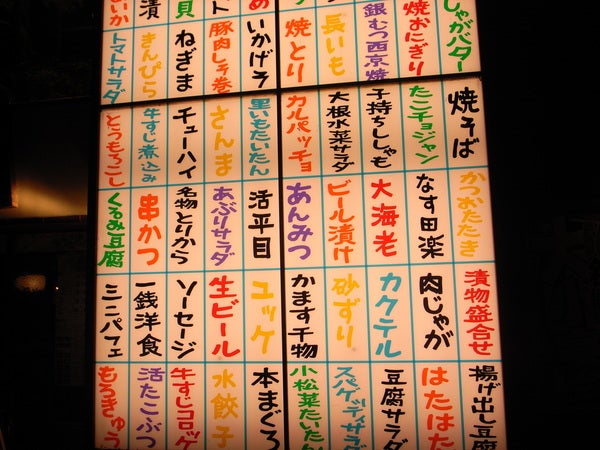 しゃがバター
焼おにぎり
銀むつ西京焼
長いも
焼とり
いかげそ
豚肉しそ巻
ねぎま
きんぴら
トマトサラダ
焼そば
たこチョジャン
子持ちししゃも
大根水菜サラダ
カルパッチョ
里いもたいたん
さんま
チューハイ
牛すじ煮込み
とうもろこし
かつおたたき
なす田楽
大海老
ビール漬け
あんみつ
活平目
あぶりサラダ
名物とりから
串かつ
くるみ豆腐
漬物盛合せ
肉じゃが
カクテル
砂ずり
かます干物
ユッケ
生ビール
ソーセージ
一銭洋食
ミニパフェ
揚げ出し豆腐
はたはた
豆腐サラダ
スパゲッテイサラダ
小松菜たいたん
本まぐろ
水餃子
牛すじコロッケ
活たこぶつ
もろきゅう